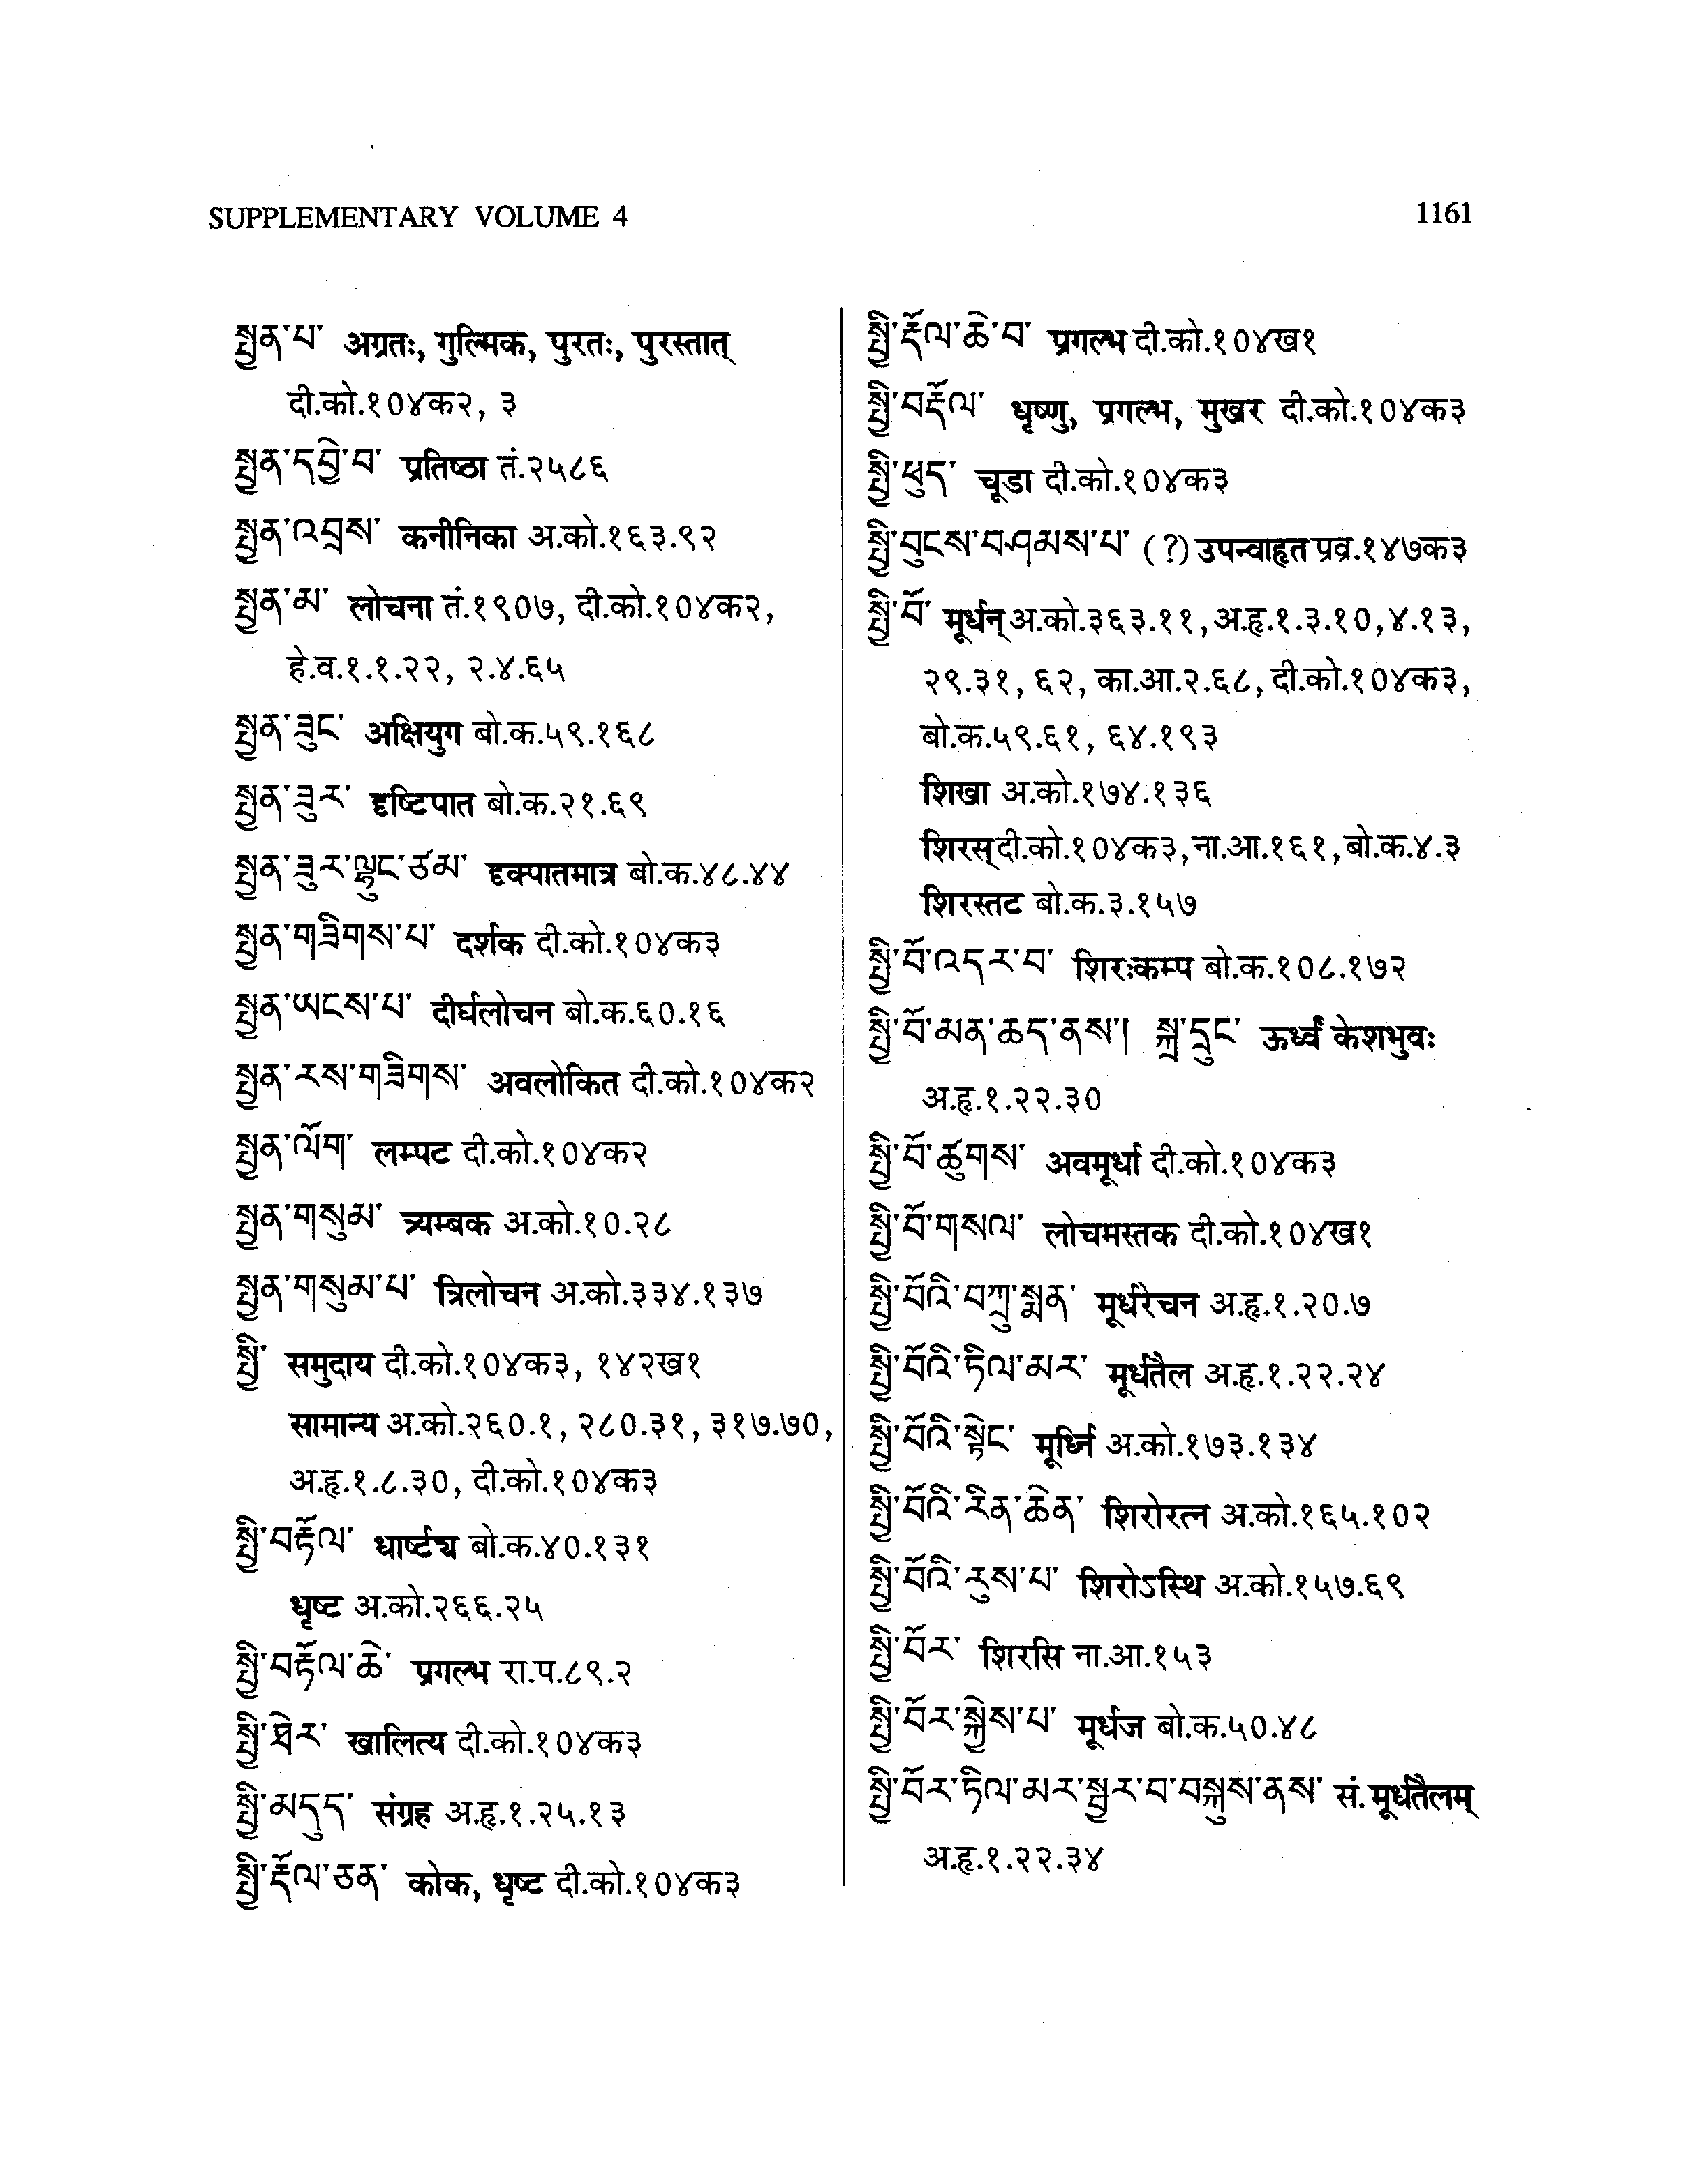 SUPPLEMENTARY VOLUME 4
1161
སྤྱན་པ་ अग्रतः, गुल्मिक, पुरतः, पुरस्तात्
दी.को.१०४क२, ३
སྤྱན་དབྱེ་བ་ प्रतिष्ठा तं.२५८६
སྤྱན་འབྲས་ कनीनिका अ.को.१६३.९२
སྤྱན་མ་ लोचना तं.१९०७, दी.को.१०४क२,
हे.व.१.१.२२, २.४.६५
སྤྱན་ཟུང་ अक्षियुग बो.क.५९.१६८
སྤྱན་ཟུར་ दृष्टिपात बो.क.२१.६९
སྤྱན་ཟུར་ལྟུང་ཙམ་ दृक्पातमात्र बो.क.४८.४४
སྤྱན་གཟིགས་པ་ दर्शक दी.को.१०४क३
སྤྱན་ཡངས་པ་ दीर्घलोचन बो.क.६०.१६
སྤྱན་རས་གཟིགས་ अवलोकित दी.को.१०४क२
སྤྱན་ལོག་ लम्पट दी.को.१०४क२
སྤྱན་གསུམ་ त्र्यम्बक अ.को.१०.२८
སྤྱན་གསུམ་པ་ त्रिलोचन अ.को.३३४.१३७
སྤྱི་ समुदाय दी.को.१०४क३, १४२ख१
सामान्य अ.को.२६०.१, २८०.३१, ३१७.७०,
अ.हृ.१.८.३०, दी.को.१०४क३
སྤྱི་བརྟོལ་ धार्ष्ट्य बो.क.४०.१३१
धृष्ट अ.को.२६६.२५
སྤྱི་བརྟོལ་ཆེ་ प्रगल्भ रा.प.८९.२
སྤྱི་ཐེར་ खालित्य दी.को.१०४क३
སྤྱི་མདུད་ संग्रह अ.हृ.१.२५.१३
སྤྱི་རྡོལ་ཅན་ कोक, धृष्ट दी.को.१०४क३
སྤྱི་རྡོལ་ཆེ་བ་ प्रगल्भ दी.को.१०४ख१
སྤྱི་བརྡོལ་ धृष्णु, प्रगल्भ, मुखर दी.को.१०४क३
སྤྱི་ཕུད་ चूडा दी.को.१०४क३
སྤྱི་བུངས་བཤམས་པ་ (?) उपन्वाहृत प्रव्र.१४७क३
སྤྱི་བོ་ मूर्धन् अ.को.३६३.११, अ.हृ.१.३.१०, ४.१३,
२९.३१, ६२, का.आ.२.६८, दी.को.१०४क३,
बो.क.५९.६१, ६४.१९३
शिखा अ.को.१७४.१३६
शिरस् दी.को.१०४क३, ना.आ.१६१, बो.क.४.३
शिरस्तट बो.क.३.१५७
སྤྱི་བོ་འདར་བ་ शिरःकम्प बो.क.१०८.१७२
སྤྱི་བོ་མན་ཆད་ནས་། སྐྲ་དྲུང་ ऊर्ध्वं केशभुवः
अ.हृ.१.२२.३०
སྤྱི་བོ་ཚུགས་ अवमूर्धा दी.को.१०४क३
སྤྱི་བོ་གསལ་ लोचमस्तक दी.को.१०४ख१
སྤྱི་བོའི་བཀྲུ་སྨན་ मूर्धरेचन अ.हृ.१.२०.७
སྤྱི་བོའི་ཏིལ་མར་ मूर्धतैल अ.हृ.१.२२.२४
སྤྱི་བོའི་སྟེང་ मूर्ध्नि अ.को.१७३.१३४
སྤྱི་བོའི་རིན་ཆེན་ शिरोरत्न अ.को.१६५.१०२
སྤྱི་བོའི་རུས་པ་ शिरोऽस्थि अ.को.१५७.६९
སྤྱི་བོར་ शिरसि ना.आ.१५३
སྤྱི་བོར་སྐྱེས་པ་ मूर्धज बो.क.५०.४८
སྤྱི་བོར་ཏིལ་མར་སྦྱར་བ་བསྐུས་ནས་ सं. मूर्धतैलम्
अ.हृ.१.२२.३४